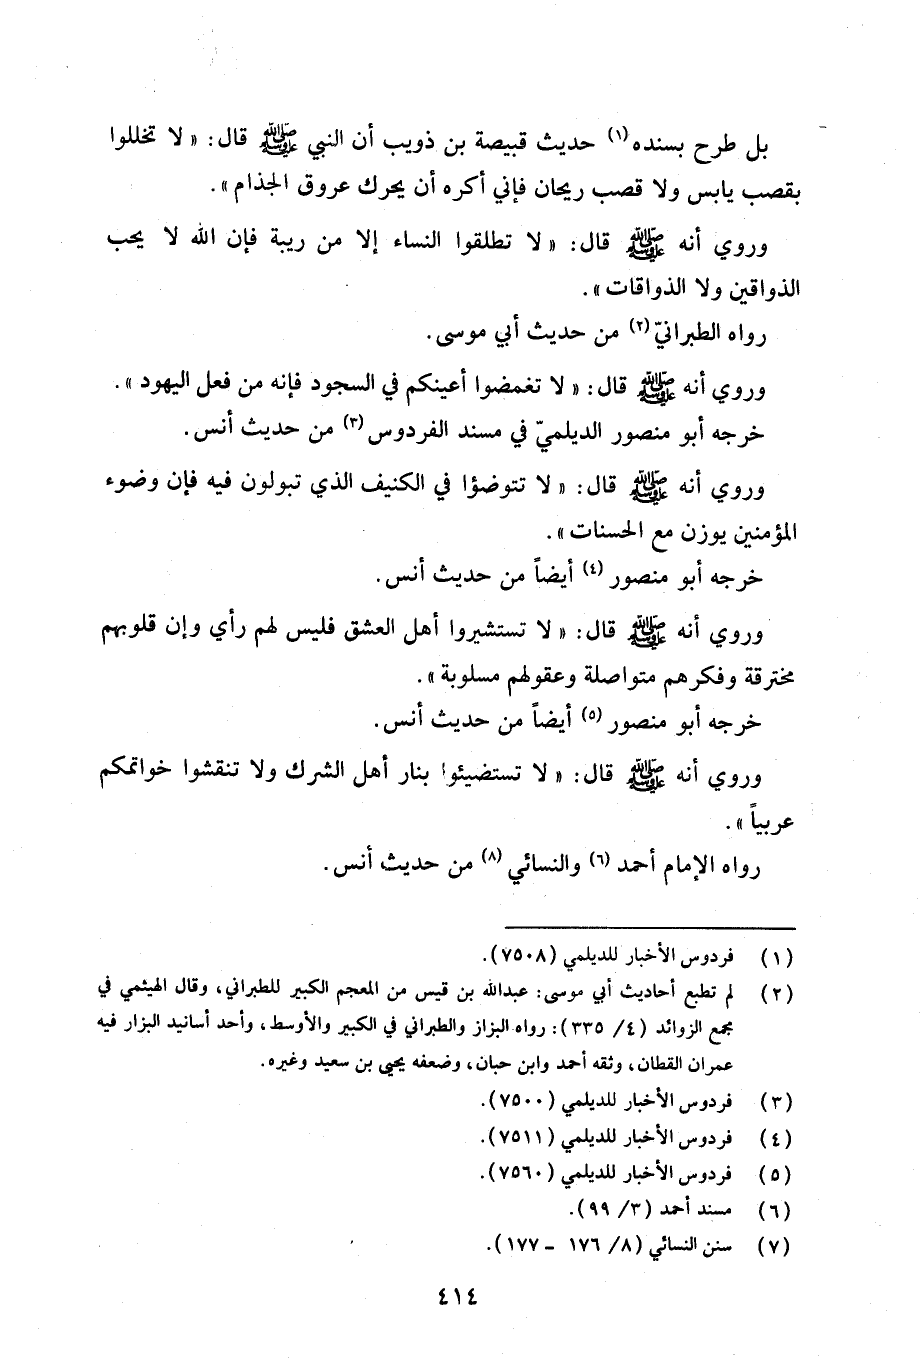 بل طرح بسنده (١) حديث قبيصة بن ذويب أن النبي ﷺ قال: « لا تخللوا
بقصب يابس ولا قصب ريحان فإني أكره أن يحرك عروق الجذام ».
وروي أنه ﷺ قال: « لا تطلقوا النساء إلا من ريبة فإن الله لا يحب
الذواقين ولا الذواقات ».
رواه الطبرانيّ (٢) من حديث أبي موسى.
وروي أنه ﷺ قال: « لا تغمضوا أعينكم في السجود فإنه من فعل اليهود ».
خرجه أبو منصور الديلميّ في مسند الفردوس (٣) من حديث أنس.
وروي أنه ﷺ قال: « لا تتوضؤا في الكنيف الذي تبولون فيه فإن وضوء
المؤمنين يوزن مع الحسنات ».
خرجه أبو منصور (٤) أيضاً من حديث أنس.
وروي أنه ﷺ قال: « لا تستشيروا أهل العشق فليس لهم رأي وإن قلوبهم
مخترقة وفكرهم متواصلة وعقولهم مسلوبة ».
خرجه أبو منصور (٥) أيضاً من حديث أنس.
وروي أنه ﷺ قال: « لا تستضيئوا بنار أهل الشرك ولا تنقشوا خواتمكم
عربياً ».
رواه الإمام أحمد (٦) والنسائي (٨) من حديث أنس.
(١) فردوس الأخبار للديلمي (٧٥٠٨).
(٢) لم تطبع أحاديث أبي موسى: عبدالله بن قيس من المعجم الكبير للطبراني، وقال الهيثمي في
مجمع الزوائد (٤/ ٣٣٥): رواه البزاز والطبراني في الكبير والأوسط، وأحد أسانيد البزار فيه
عمران القطان، وثقه أحمد وابن حبان، وضعفه يحيى بن سعيد وغيره.
(٣) فردوس الأخبار للديلمي (٧٥٠٠).
(٤) فردوس الأخبار للديلمي (٧٥١١).
(٥) فردوس الأخبار للديلمي (٧٥٦٠).
(٦) مسند أحمد (٣/ ٩٩).
(٧) سنن النسائي (٨/ ١٧٦ - ١٧٧).
٤١٤